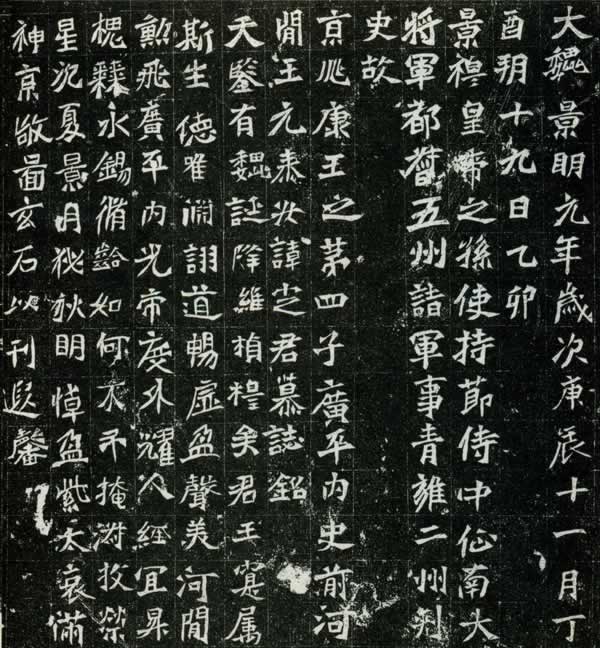 大魏景明元年歲次庚辰十一月丁
酉朔十九日乙卯
景穆皇帝之孫使持節侍中征南大
將軍都督五州諸軍事青雍二州刺
史故
京兆康王之第四子廣平內史前河
間王元泰安諱定君墓誌銘
天鑒有魏誕降維楨程矣君王寔属
斯生德唯淵詡道暢虛盈聲美河間
勳飛廣平內光帝度外耀人經宜昇
槐鼎永錫脩齡如何不弔掩泭攸榮
星沉夏景月秘秋明悼盈紫太哀滿
神京敬啚玄石以刊遐馨